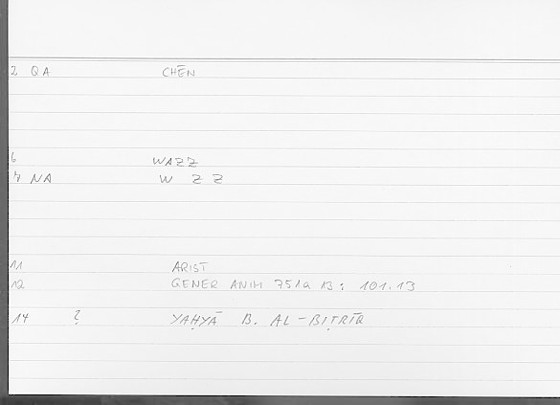 2 QA CHĒN
6 WAZZ
7 NA W Z Z
11 ARIST
12 GENER ANIM 751a 13 : 101.13
14 ? YAḤYĀ B. AL-BIṬRĪQ